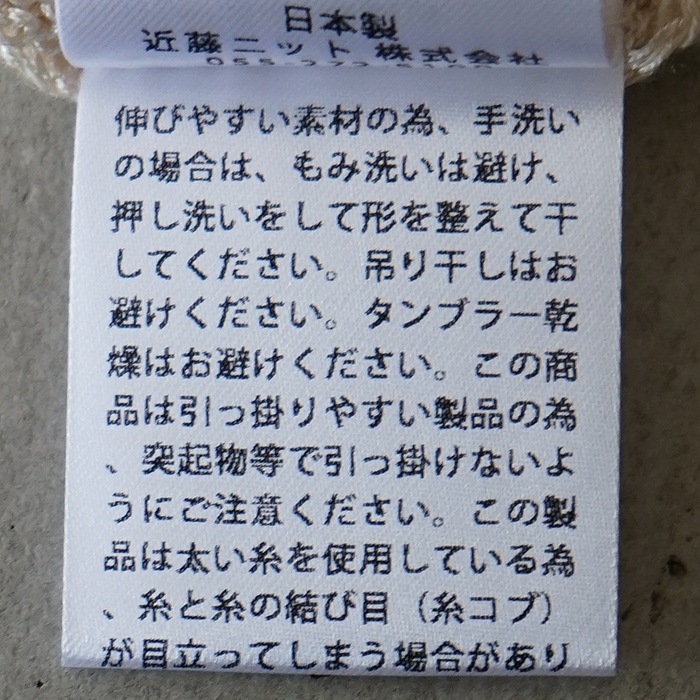 日本製
近藤ニット 株式会社
伸びやすい素材の為、手洗い
の場合は、もみ洗いは避け、
押し洗いをして形を整えて干
してください。吊り干しはお
避けください。タンブラー乾
燥はお避けください。この商
品は引っ掛りやすい製品の為
、突起物等で引っ掛けないよ
うにご注意ください。この製
品は太い糸を使用している為
、糸と糸の結び目（糸コブ）
が目立ってしまう場合があり